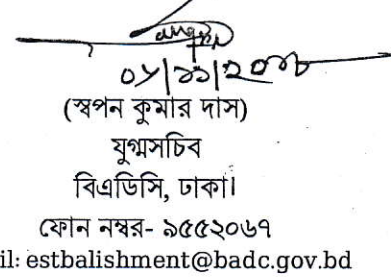 (স্বপন কুমার দাস)
যুগ্মসচিব
বিএডিসি, ঢাকা।
ফোন নম্বর- ৯৫৫২০৬৭
il: estbalishment@badc.gov.bd